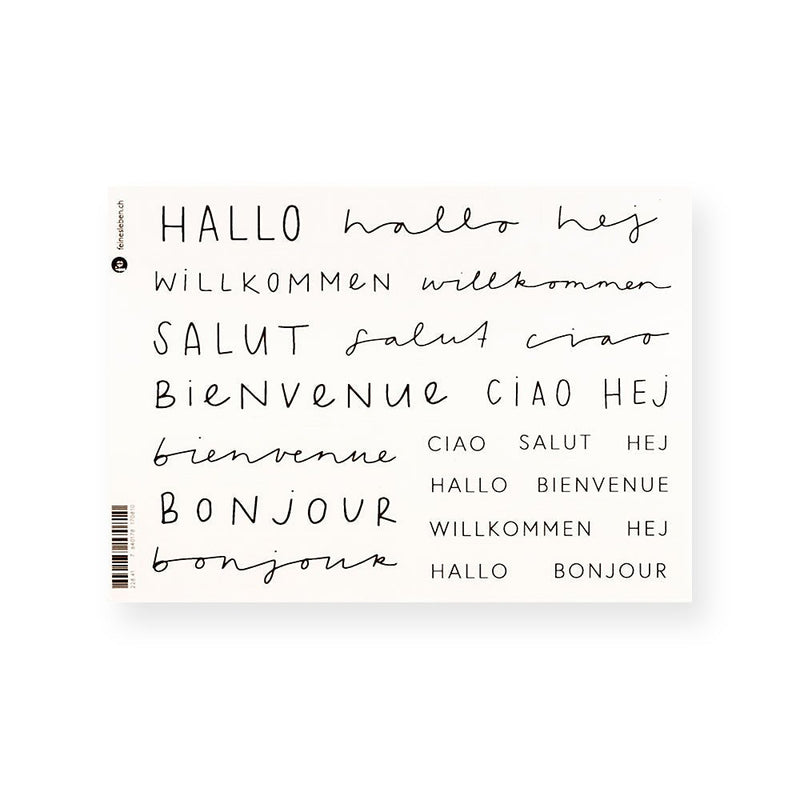 HALLO hallo hej
WiLLKOMMEN willkommen
SALUT salut ciao
BieNVeNUe CiAO HEj
bienvenue
CIAO SALUT HEJ
HALLO BIENVENUE
BONjOUR
WILLKOMMEN HEJ
bonjour
HALLO BONJOUR
feinesleben.ch